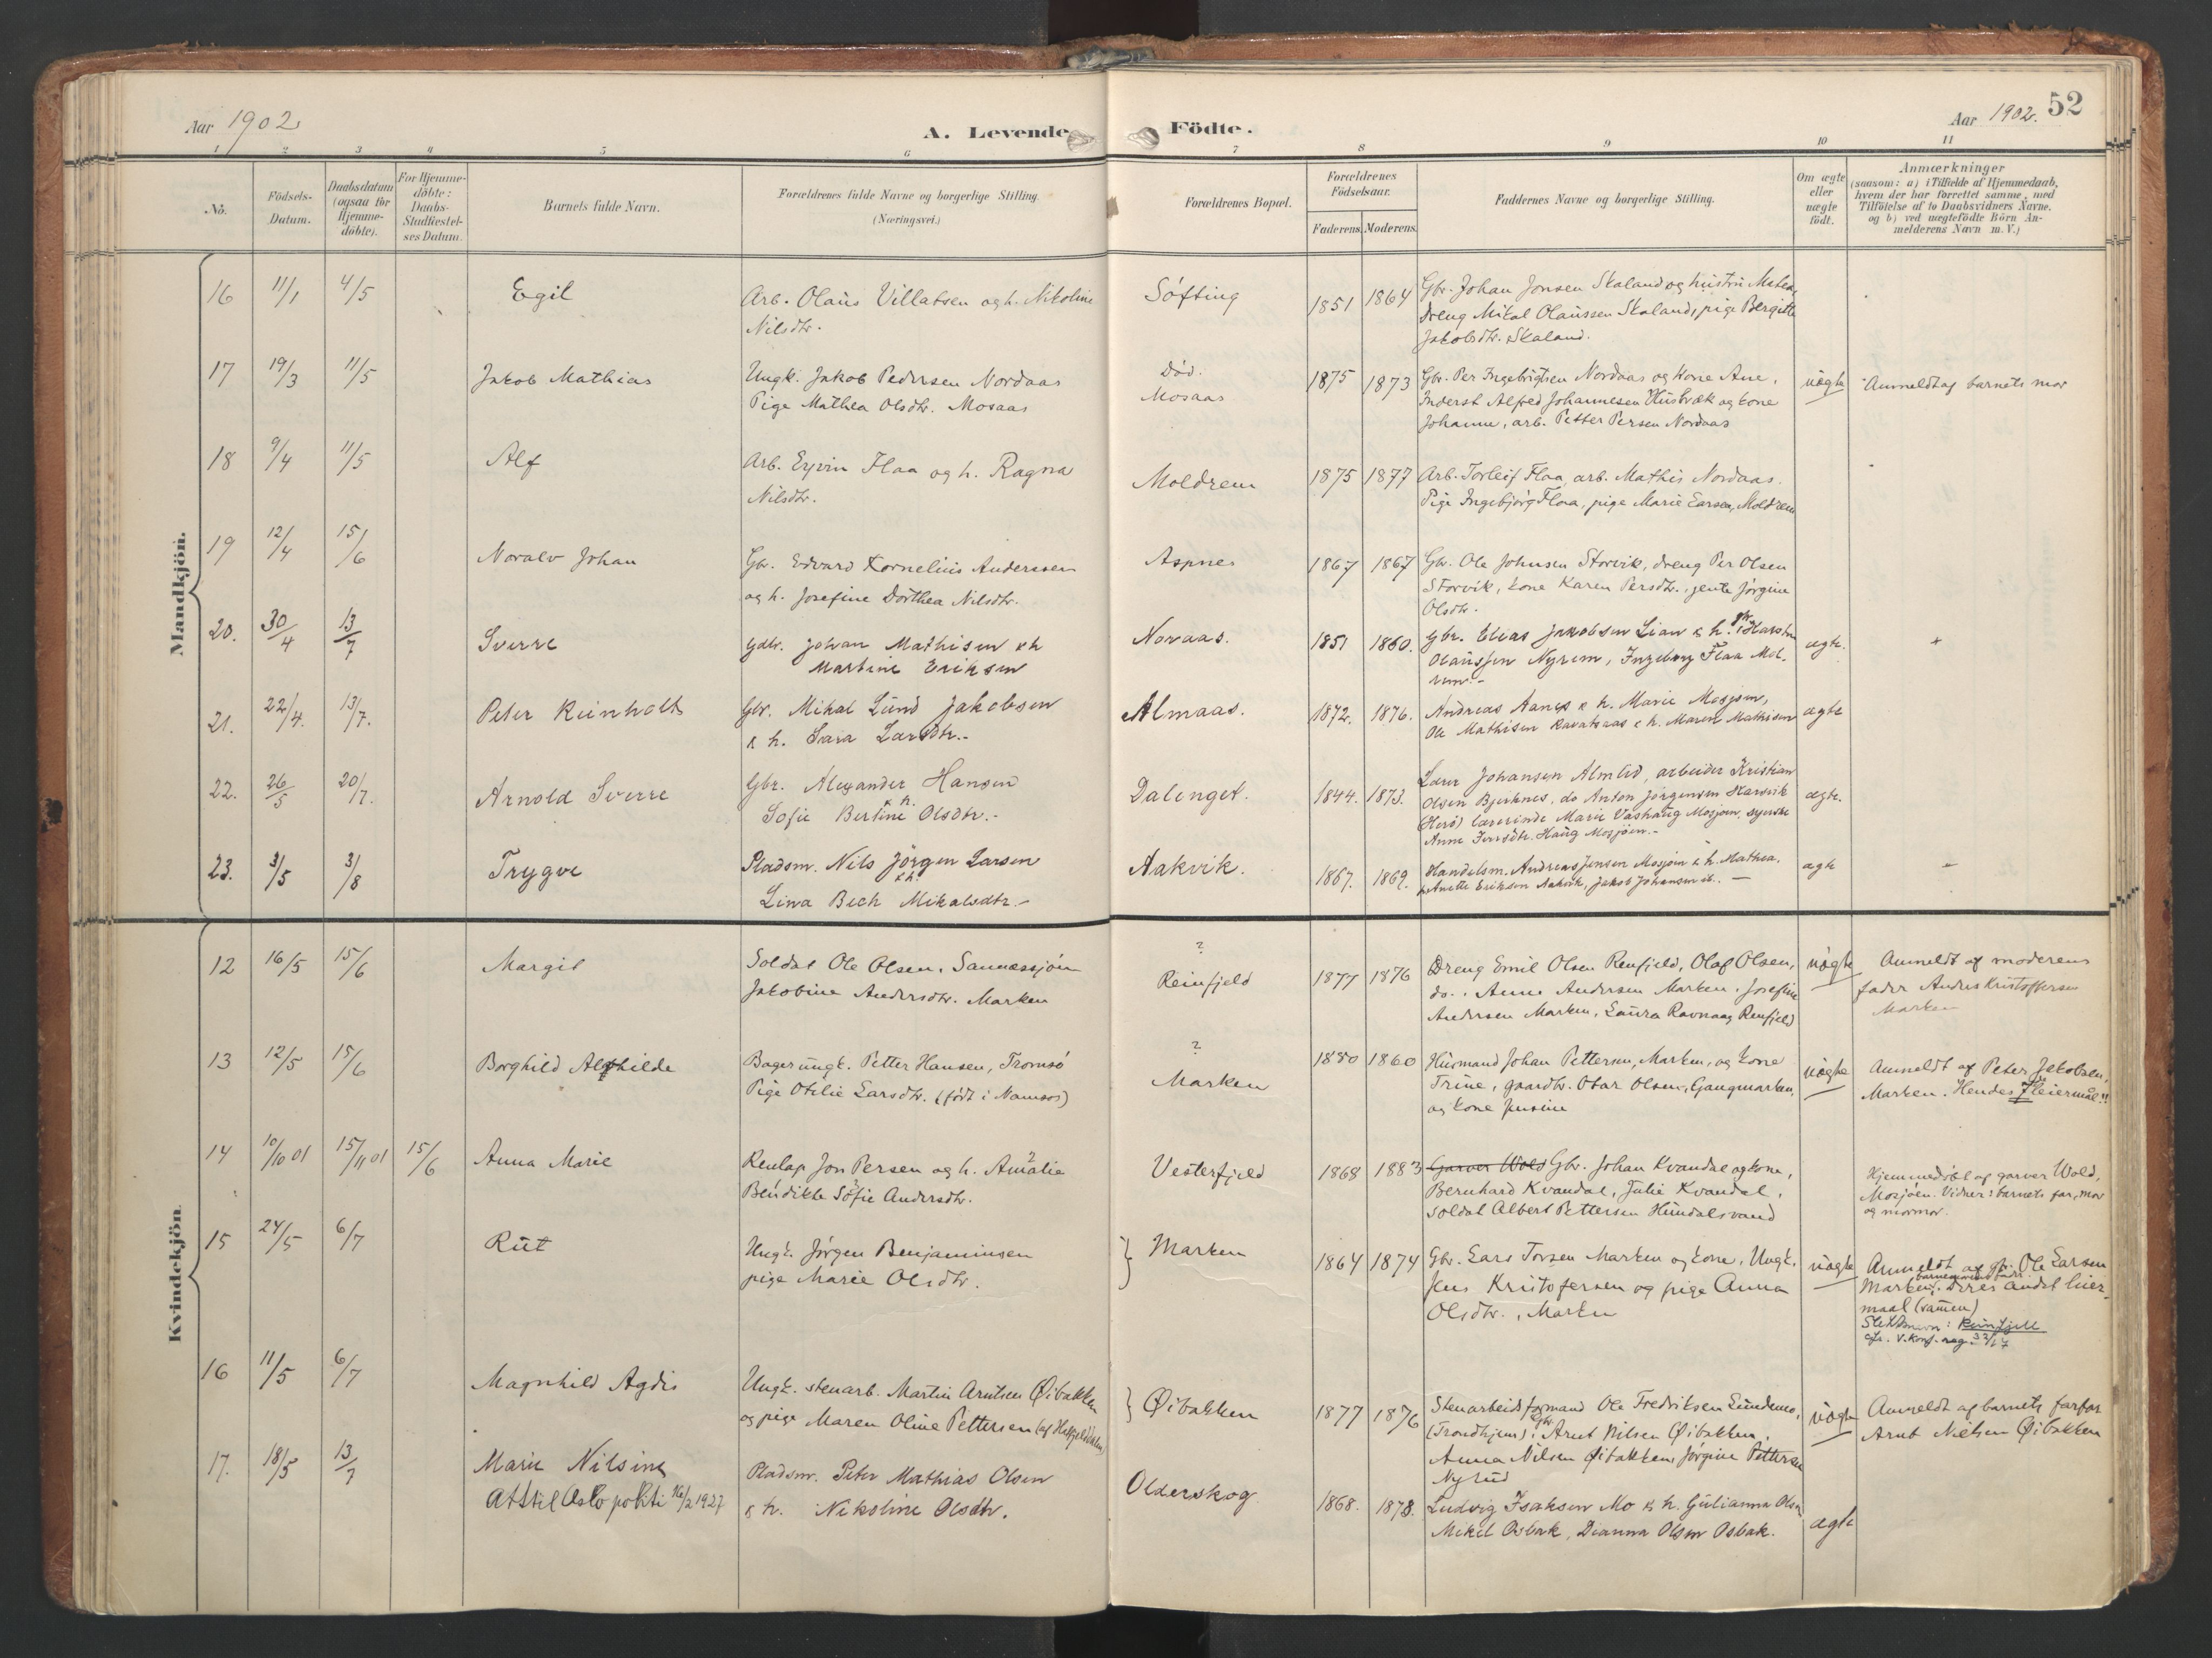 Aar 1902
A. Levende Födte.
Aar 1902. 52
1 2 3 4 5 6 7 8 9 10 11
No.
Födsels-
Datum.
Daabsdatum
(ogsaa for
Hjemme-
döbte).
For Hjemme-
döbte:
Daabs-
Stadfæstel-
ses Datum.
Barnets fulde Navn.
Forældrenes fulde Navne og borgerlige Stilling.
(Næringsvei.)
Forældrenes Bopæl.
Forældrenes
Födselsaar.
Faderens. Moderens.
Faddernes Navne og borgerlige Stilling.
Om ægte
eller
uægte
födt.
Anmærkninger
(saasom: a) i Tilfælde af Hjemmedaab,
hvem der har forrettet samme, med
Tilföielse af to Daabsvidners Navne.
og b) ved uægtefödte Börn An-
melderens Navn m. V.)
Mandkjön.
16 11/1 4/5 Egil
Arb. Olaus Villatsen og h. Nikoline
Nilsdtr.
Söfting
1851 1864
Gbr. Johan Jonsen Skaland og hustru Matea
dreng Mikal Olaussen Skaland, pige Bergitte
Jakobsdtr. Skaland.
17 19/3 11/5 Jakob Mathias
Ungk. Jakob Pedersen Nordaas
Pige Mathea Olsdtr. Mosaas
Död.
Mosaas
1875 1873
Gbr. Per Ingebrigtsen Nordaas og kone Ane,
Inderst Alfred Johannesen Husbræk og kone
Johanne, arb. Petter Persen Nordaas
uægte
Anmeldt af barnets mor
18 9/4 11/5 Alf
Arb. Eyvin Flaa og h. Ragna
Nilsdtr.
Moldrem
1875 1877
Arb. Torleif Flaa, arb. Mathis Nordaas.
Pige Ingebjörg Flaa, pige Marie Larsen, Moldrem
19 12/4 15/6 Noralv Johan
Gbr. Edvard Kornelius Anderssen
og h. Josefine Dorthea Nilsdtr.
Aspnes
1867 1867
Gbr. Ole Johnsen Storvik, dreng Per Olsen
Storvik, kone Karen Persdtr., jente Jörgine
Olsdtr.
20. 30/4 13/7 Sverre
Gdbr. Johan Mathisen & h
Martine Eriksen
Noraas.
1851 1860.
Gbr. Elias Jakobsen Lian & h.
Olaussen Nyrem, Ingeborg Flaa Mol-
rem.-
ægte.
21. 22/4. 13/7. Peter Reinholt
Gbr. Mikal Lund Jakobsen
& h. Sara Larsdtr.-
Almaas.
1872. 1876.
Andreas Aanes & h. Marie Mosjoen,
Ole Mathisen Ravatsaas & h. Maren Mathisen
ægte
22. 26/5 20/7. Arnold Sverre
Gbr. Alexander Hansen
& h.
Sofie Bertine Olsdtr.-
Dalenget.
1844. 1873.
Lærer Johansen Almlid, arbeider Kristian
Olsen Bjerknes, do Anton Jörgensen Harsvik
(Herö) lærerinde Marie Vashaug Mosjoen, syerske
Anne Iversdtr. Haug Mosjöen.-
ægte.
23. 3/5 3/8 Trygve
Pladsm. Nils Jörgen Larsen
& h.
Lina Bech Mikalsdtr.-
Aakvik.
1867. 1869.
Handelsm. Andreas Jensen Mosjöen & h. Mathea.
Anette Eriksen Aakvik, Jakob Johansen ib.. -
ægte
Kvindekjön.
12 16/5 15/6 Margit
Soldat Ole Olsen, Sannessjöen
Jakobine Andersdtr. Marken
?
Reinfjeld
1877 1876
Dreng Emil Olsen Renfjeld, Olaf Olsen,
do.. Anne Andersen Marken. Josefine
Andersen Marken, Laura Ravnaas Renfjeld
uægte
Anmeldt af moderens
fader Anders Kristoffersen
Marken
13 12/5 15/6 Borghild Alfhilde
Bagerungk. Petter Hansen, Tromsö
Pige Otelie Larsdtr. (födt i Namsos)
?
Marken
1880 1860
Husmand Johan Pettersen, Marken, og kone
Trine, gaardbr. Otar Olsen, Gangmarken,
og kone Jensine
uægte
Anmeldt af Peter Jakobsen,
Marken. Hendes 7 leiermål!!
14 10/10 01 15/11 01 15/6 Anna Marie
Renlap Jon Persen og h. Amalie
Bendikte Sofie Andersdtr.
Vesterfjeld
1868 1883
Garver Wold Gbr. Johan Kvandal og kone,
Bernhard Kvandal, Julie Kvandal,
soldat Albert Pettersen Hundalsvand
Hjemmedöbt af garver Wold,
Mosjöen. Vidner: barnets far, mor
og mormor.
15 24/5 6/7 Rut
Ungk. Jörgen Benjaminsen
pige Marie Olsdtr.
Marken
1864 1874
Gbr. Lars Torsen Marken og kone. Ungk.
Jens Kristofersen og pige Anna
Olsdtr., Marken
uægte
Anmeldt af gbr. Ole Larsen
Marken, barnemorens fader. Deres andet leier-
maal (sammen)
Slektsnavn: Reinfjell
cfr. v. konf. reg. 33/17
16 11/5 6/7 Magnhild Agdis
Ungk. stenarb. Martin Arntsen Öibakken
og pige Maren Oline Pettersen (af Hatfjelddalen)
Öibakken
1877 1876
Stenarbeidsformand Ole Fredriksen Lundemo,
(Trondhjem), Gbr. Arnt Nilsen Öibakken.
Anna Nilsen Öibakken, Jörgine Pettersen
Nyrud
uægte
Anmeldt af barnets farfar
Arnt Nielsen Öibakken
17. 18/5 13/7 Marie Nilsine
Att til Oslo politi 16/2 1927
Pladsm. Peter Mathias Olsen
& h. Nikoline Olsdtr.
Olderskog
1868. 1878.
Ludvig Isaksen Mo & h. Gulianna Olsen
Mikel Osbak, Dianna Olsen Osbak.
ægte